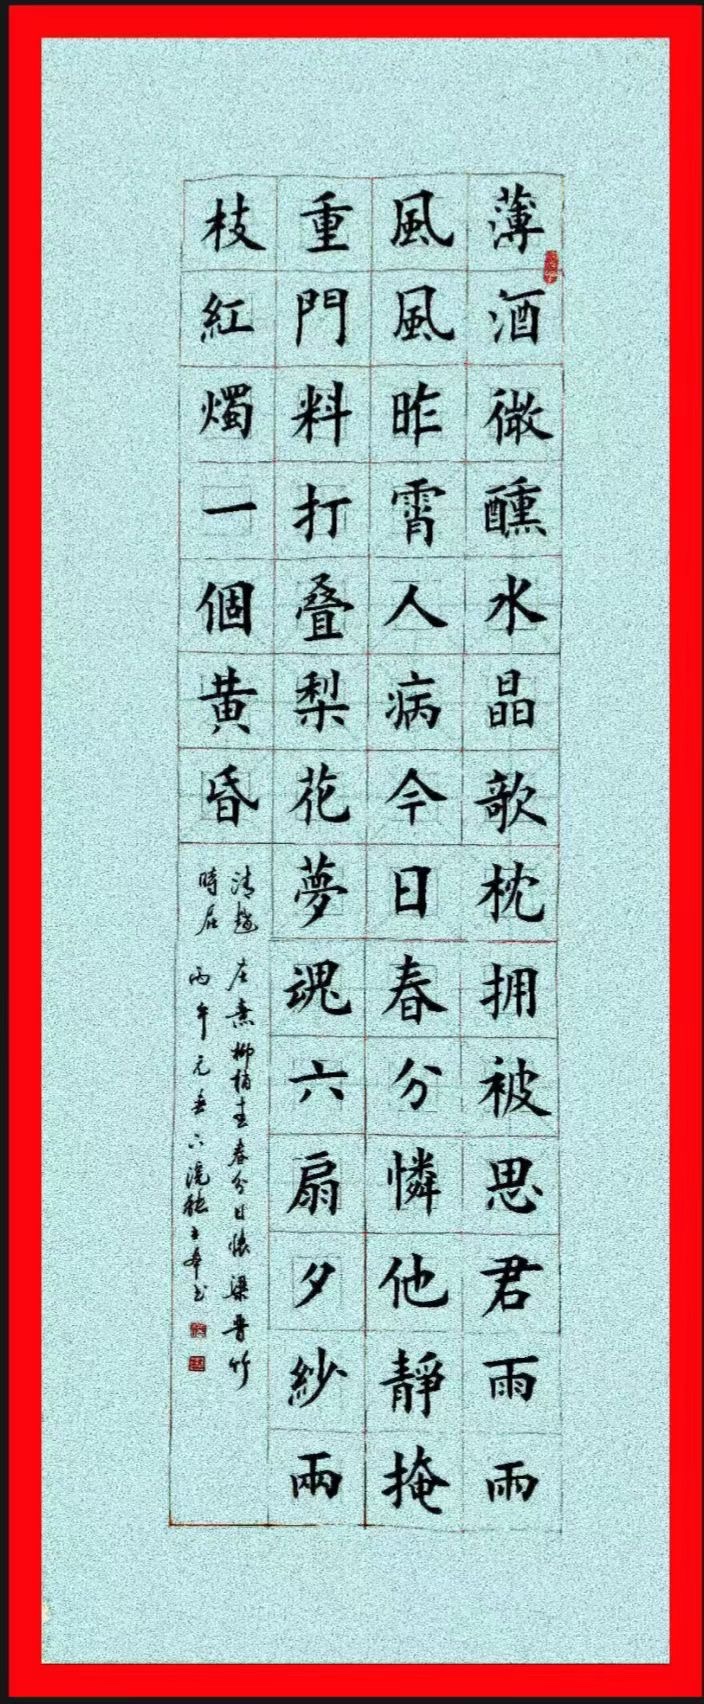 薄酒微醺水晶欹枕拥被思君雨雨
風風昨宵人病今日春分憐他靜掩
重門料打叠梨花夢魂六扇夕紗兩
枝紅燭一個黄昏
清趙 在熹柳梢青春分日懷梁晉竹
時居 丙午元